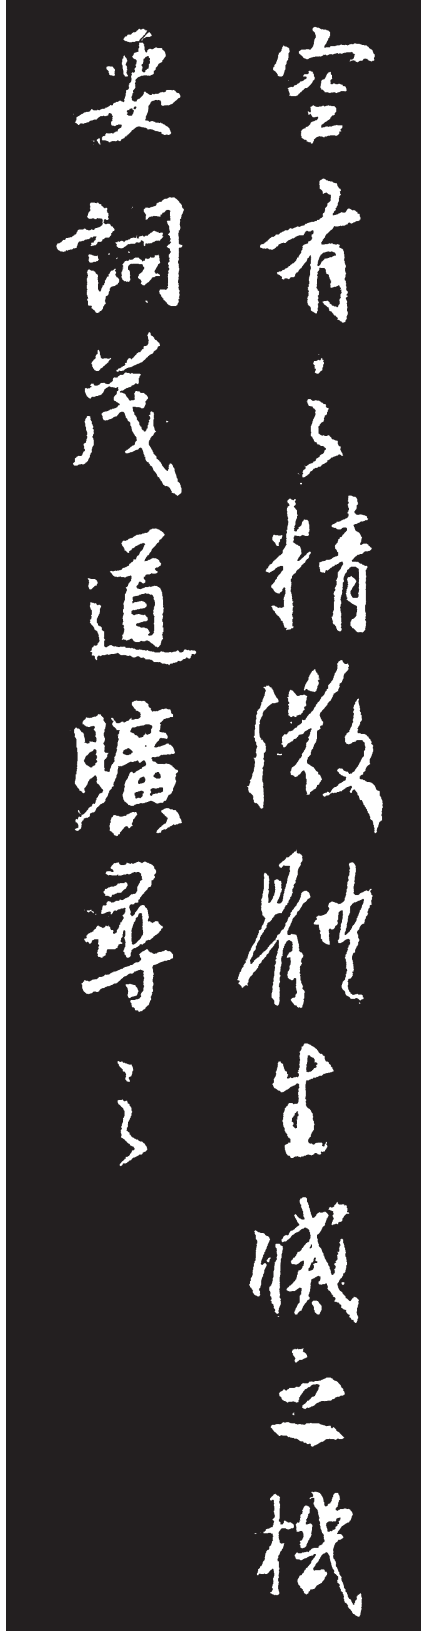 空有之精微體生滅之機
要詞茂道曠尋之